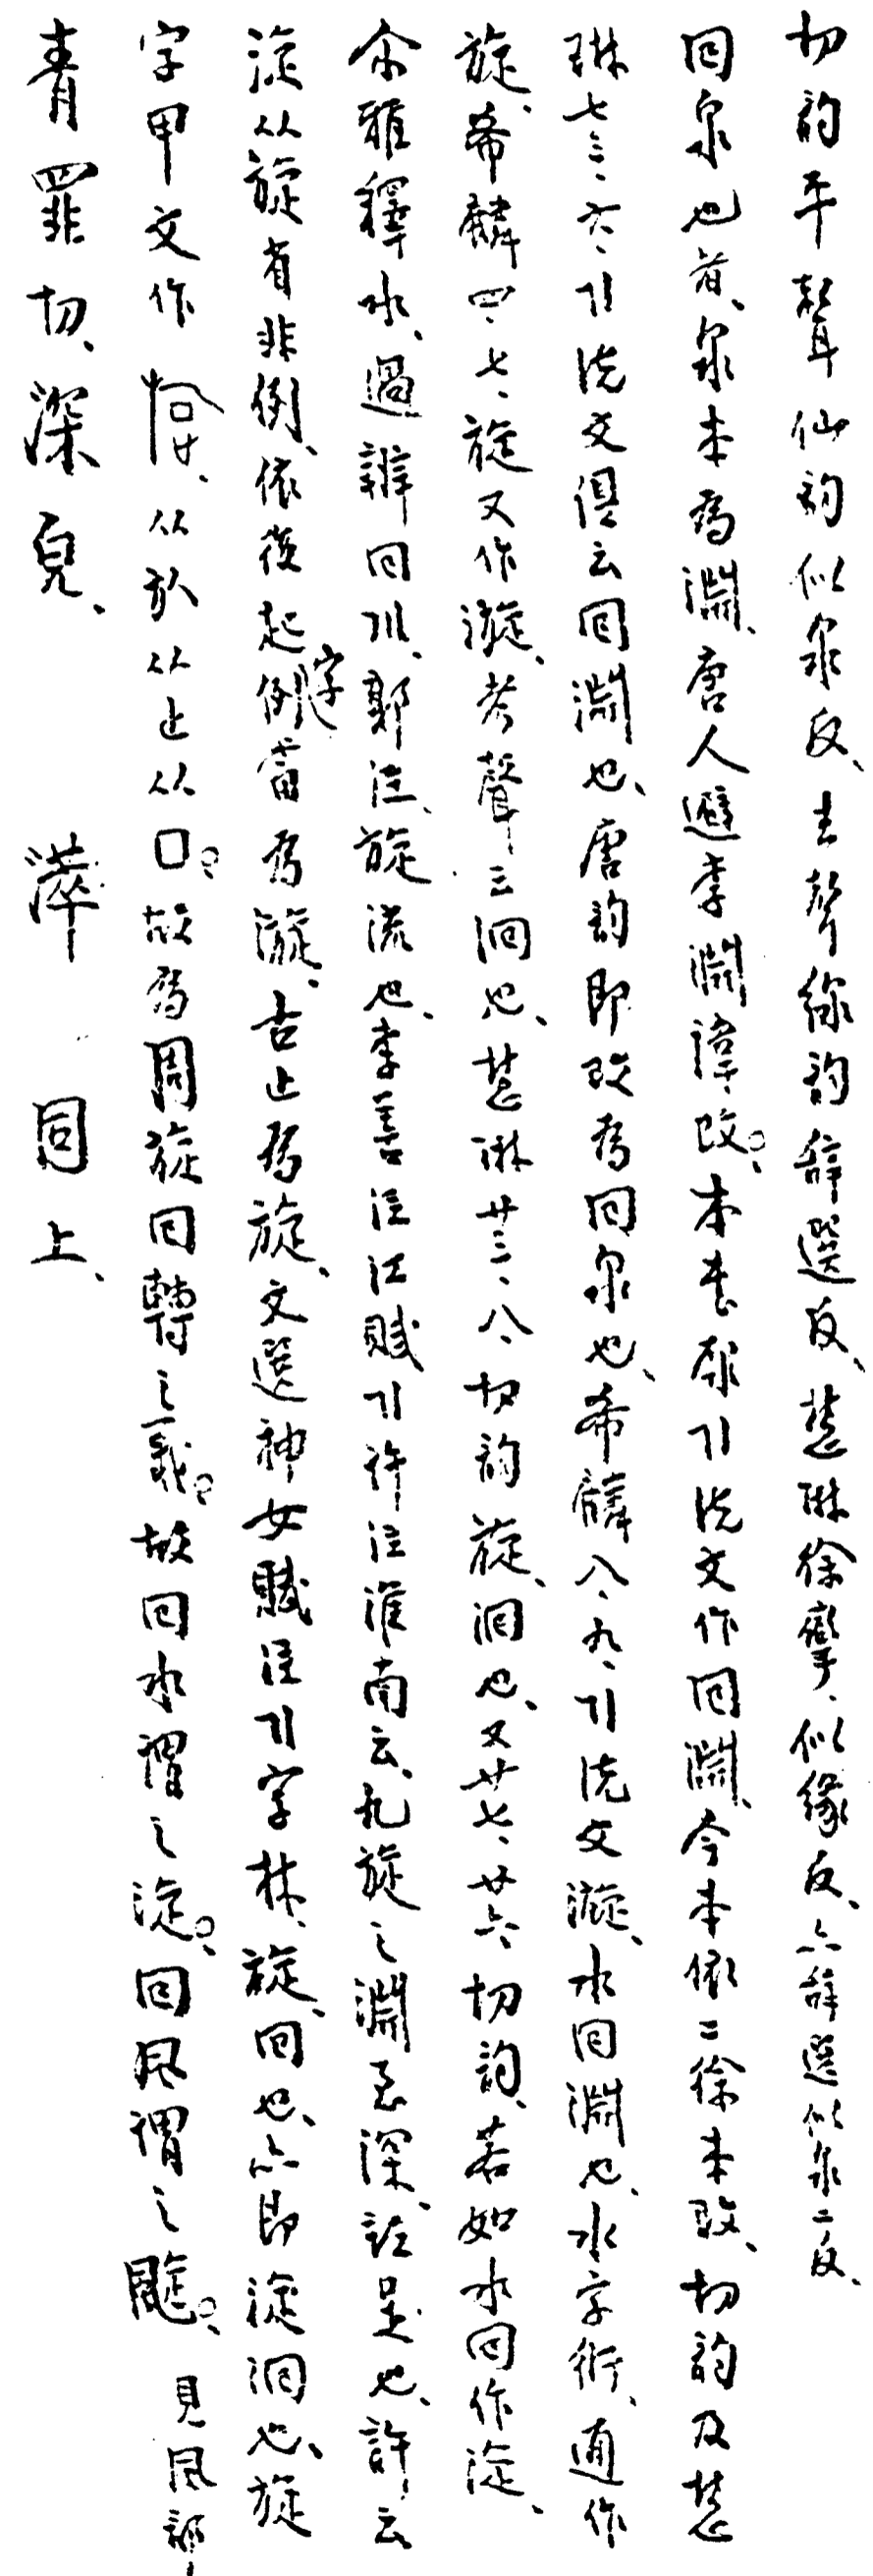 切韵平聲仙韵似泉反、去聲線韵辝選反、慧琳徐孿、似緣反、亦辝選似泉二反、
回泉也者、泉本爲淵、唐人避李淵諱、改。本書原引説文作回淵、今本依二徐本改、切韵及慧
琳七三、六、引説文俱云回淵也、唐韵即改爲回泉也、希麟八、九、引説文漩、水回淵也、水字衍、通作
旋、希麟四、七、旋又作漩、考聲云洄也、慧琳廿三、八、切韵旋、洄也、又廿七、廿六、切韵、若如水回作淀、
尒雅釋水、過辨回川、郭注、旋流也、李善注江賦引許注淮南云、九旋之淵至深、許云
淀从旋省非例、依後起字例當爲漩、古止爲旋、文選神女賦注引字林、旋、回也、亦即淀洄也、旋
字甲文作、从㫃从止从口。故爲周旋回轉之義。故回水謂之淀。回風謂之颴。見風部
青罪切、深皃、　　　同上、